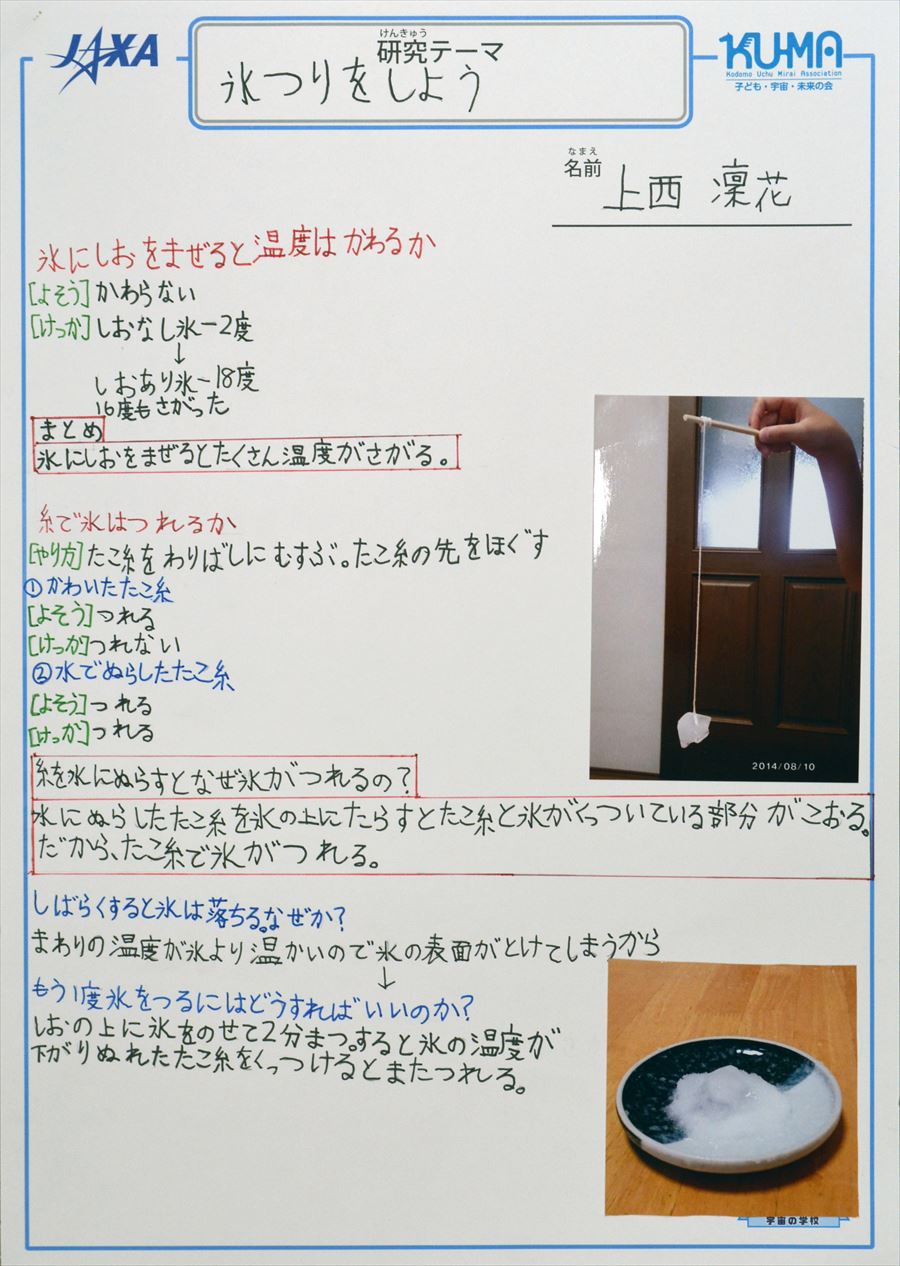 JAXA
けんきゅう
研究テーマ
氷つりをしよう
KU-MA
Kodomo Uchu Mirai Association
子ども・宇宙・未来の会
なまえ
名前
上西 凜花
氷にしおをまぜると温度はかわるか
[よそう]かわらない
[けっか]しおなし氷-2度
↓
しおあり氷-18度
16度もさがった
まとめ
氷にしおをまぜるとたくさん温度がさがる。
糸で氷はつれるか
[やり方]たこ糸をわりばしにむすぶ。たこ糸の先をほぐす
①かわいたたこ糸
[よそう]つれる
[けっか]つれない
②水でぬらしたたこ糸
[よそう]つれる
[けっか]つれる
糸を水にぬらすとなぜ氷がつれるの?
水にぬらしたたこ糸を氷の上にたらすとたこ糸と氷がくっついている部分がこおる。
だから、たこ糸で氷がつれる。
2014/08/10
しばらくすると氷は落ちる。なぜか?
まわりの温度が氷より温かいので氷の表面がとけてしまうから
↓
もう1度氷をつるにはどうすればいいのか?
しおの上に氷をのせて2分まつ。すると氷の温度が
下がりぬれたたこ糸をくっつけるとまたつれる。
宇宙の学校